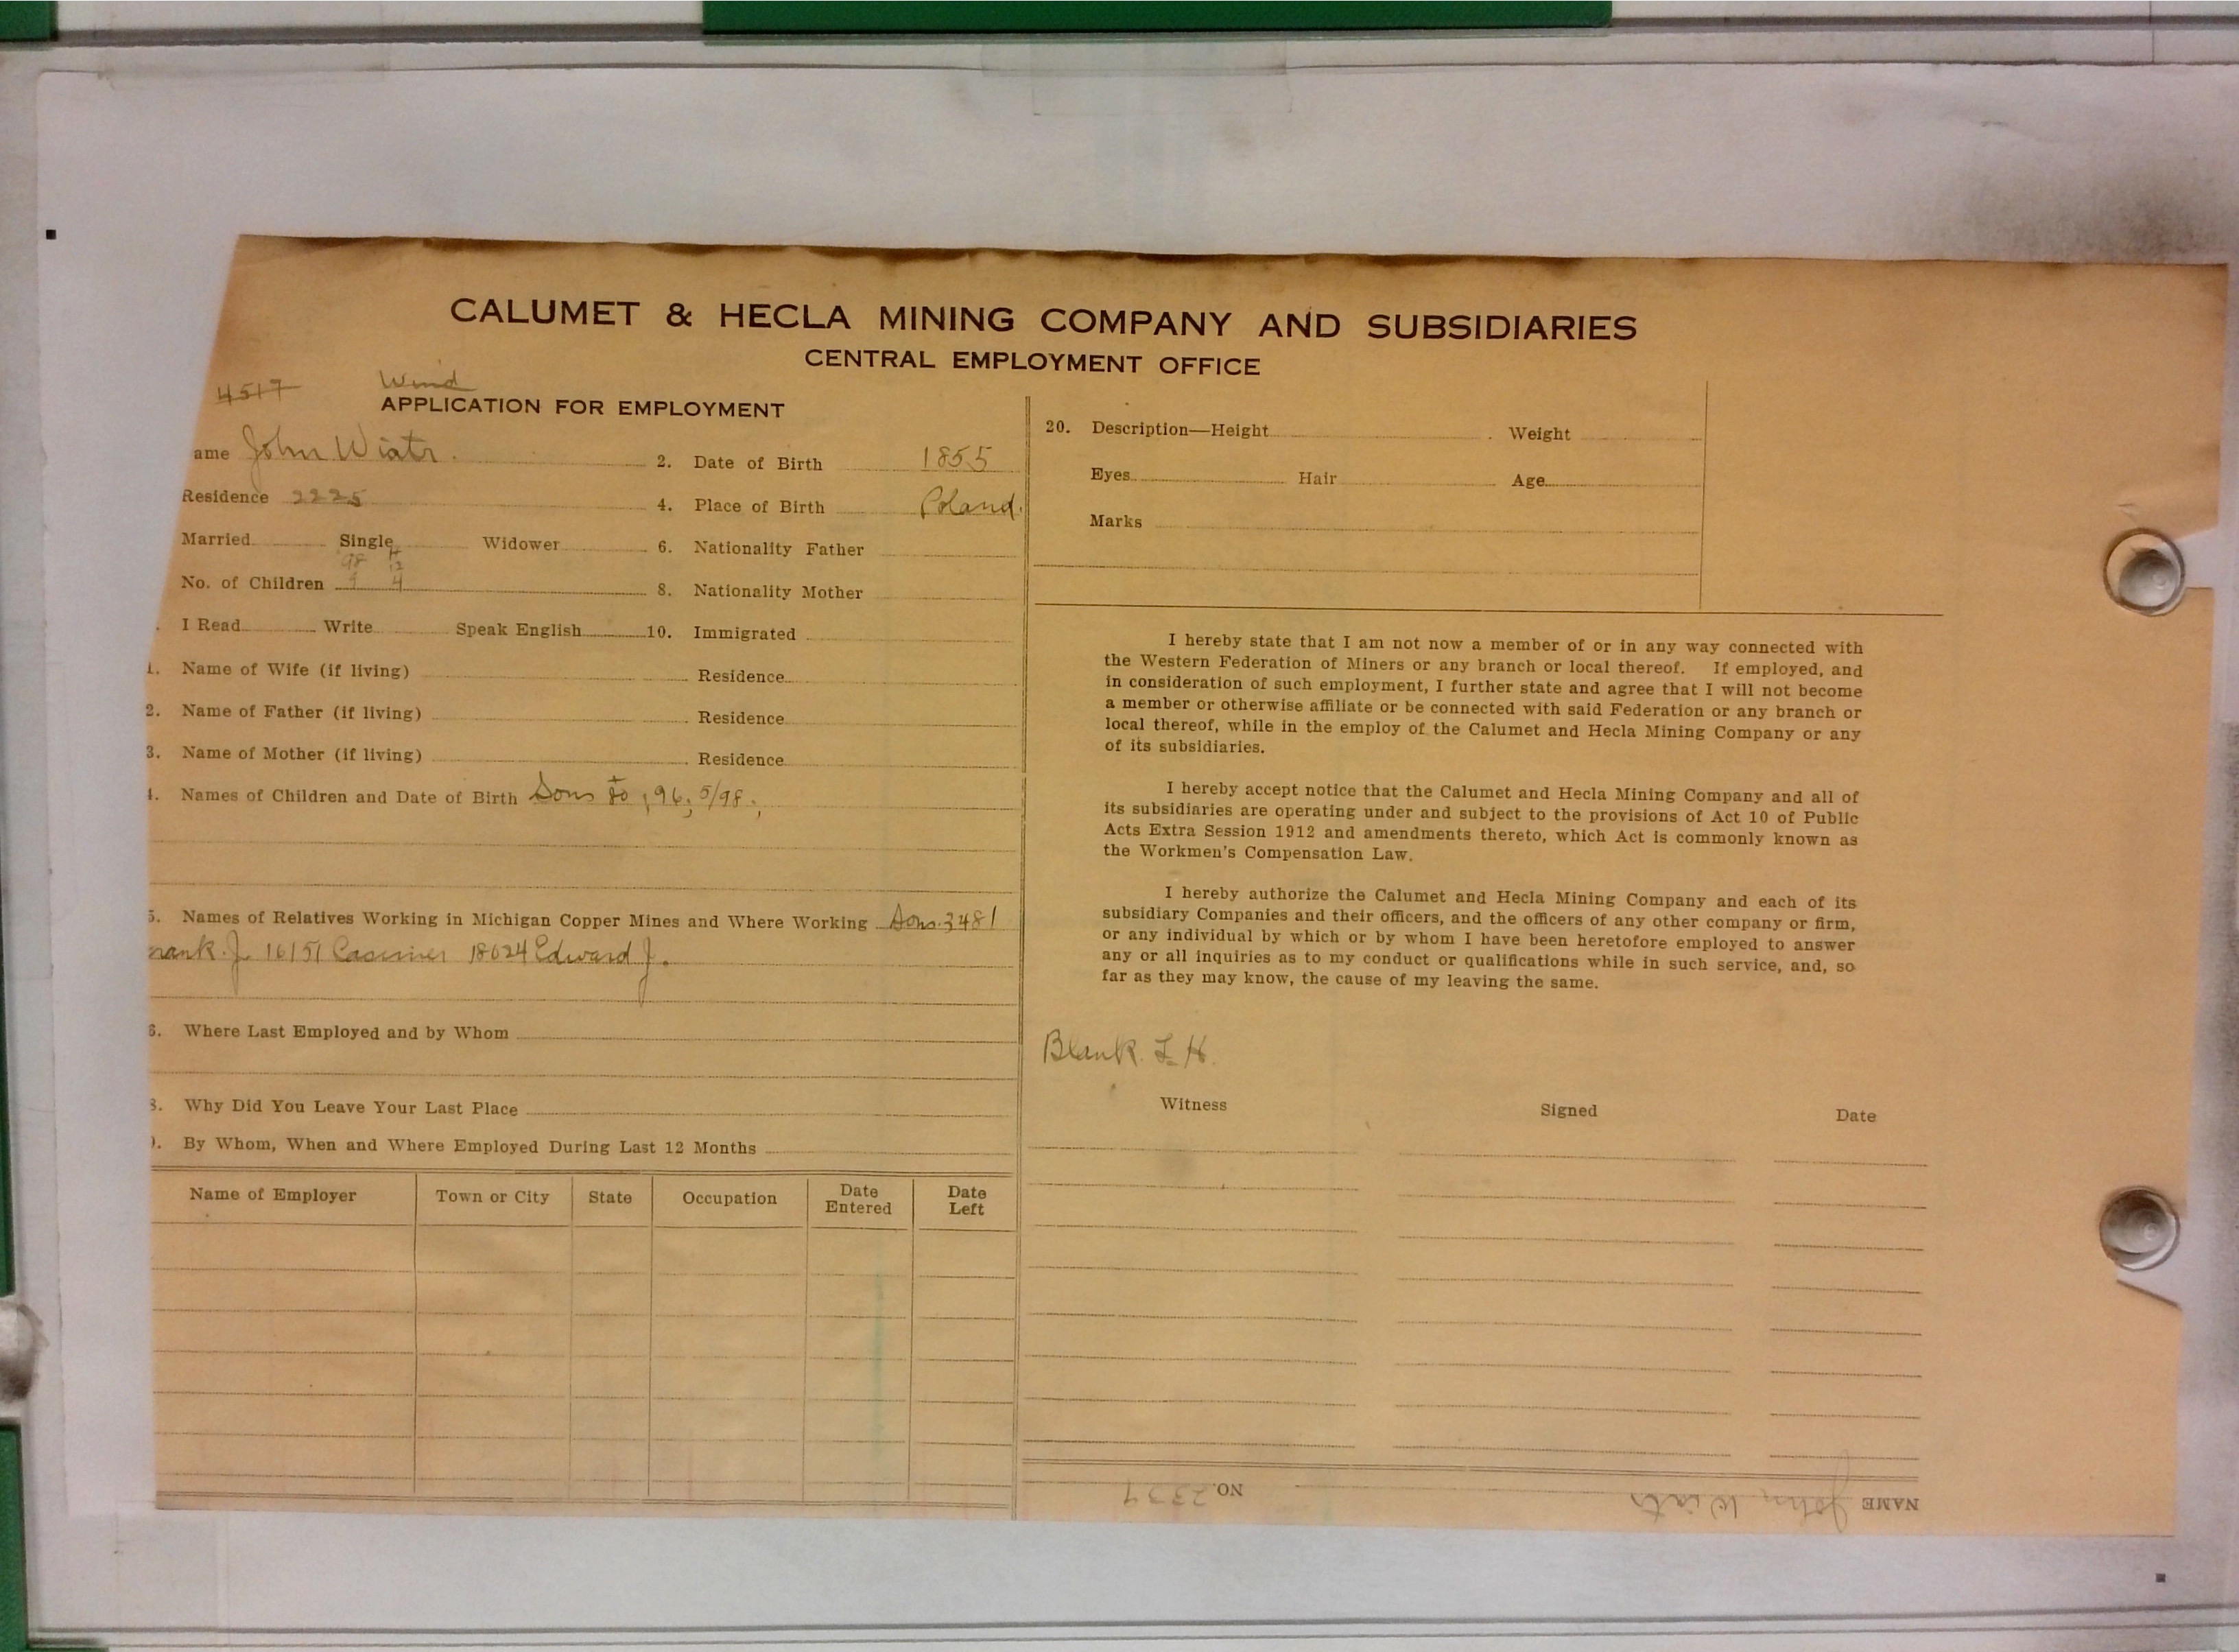 CALUMET & HECLA MINING COMPANY AND SUBSIDIARIES
CENTRAL EMPLOYMENT OFFICE
4517 Wind
APPLICATION FOR EMPLOYMENT
ame John Wiatr. 2. Date of Birth 1855
Residence 2225 4. Place of Birth Poland.
Married Single Widower 6. Nationality Father
No. of Children 4 8. Nationality Mother
I Read Write Speak English 10. Immigrated
1. Name of Wife (if living) Residence
2. Name of Father (if living) Residence
3. Name of Mother (if living) Residence
4. Names of Children and Date of Birth Sons 96; 5/98;
5. Names of Relatives Working in Michigan Copper Mines and Where Working Sons. 3481
rank. J. 16151 Casimer 18624 Edward J.
6. Where Last Employed and by Whom
8. Why Did You Leave Your Last Place
9. By Whom, When and Where Employed During Last 12 Months
Name of Employer Town or City State Occupation Date Entered Date Left
20. Description—Height Weight
Eyes Hair Age
Marks
I hereby state that I am not now a member of or in any way connected with
the Western Federation of Miners or any branch or local thereof. If employed, and
in consideration of such employment, I further state and agree that I will not become
a member or otherwise affiliate or be connected with said Federation or any branch or
local thereof, while in the employ of the Calumet and Hecla Mining Company or any
of its subsidiaries.
I hereby accept notice that the Calumet and Hecla Mining Company and all of
its subsidiaries are operating under and subject to the provisions of Act 10 of Public
Acts Extra Session 1912 and amendments thereto, which Act is commonly known as
the Workmen's Compensation Law.
I hereby authorize the Calumet and Hecla Mining Company and each of its
subsidiary Companies and their officers, and the officers of any other company or firm,
or any individual by which or by whom I have been heretofore employed to answer
any or all inquiries as to my conduct or qualifications while in such service, and, so
far as they may know, the cause of my leaving the same.
Blank. L. H.
Witness Signed Date
NAME John Wiatr NO.